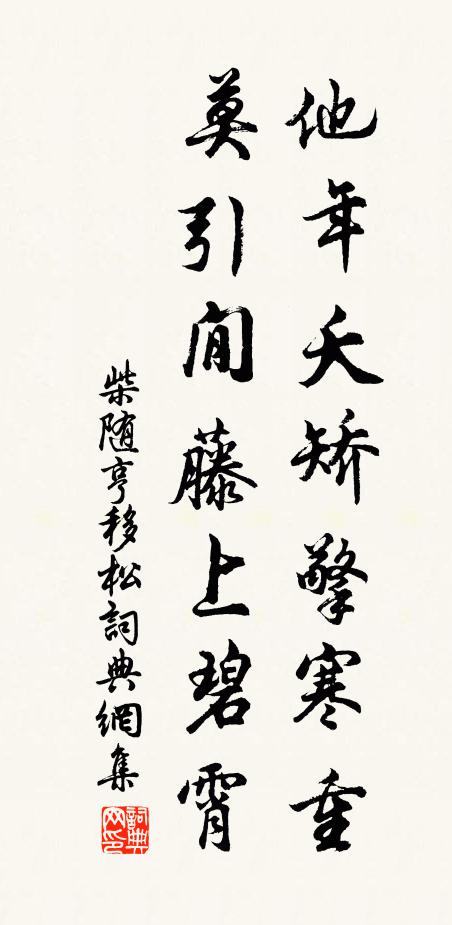 他年夭矯擎寒重
莫引閒藤上碧霄
柴随亨移松詞典網集
詞典网印